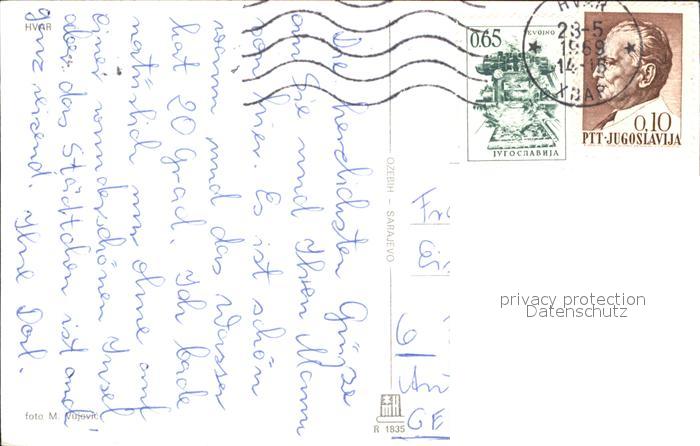 HVAR
Die herzlichsten Grüsse
an Sie und Ihren Mann
von hier. Es ist schön
warm und das Wasser
hat 20 Grad. Ich bade
natürlich nur ohne auf
einer wunderschönen Insel
das Städtchen ist auch
ganz reizend. Ihre
foto M. Vujović
OZEBIH – SARAJEVO
R 1835
0.65
JУGOCЛABИJA
HVAR
28-5
1969
14-15
XBAP
0,10
PTT-JUGOSLAVIJA
GE
privacy protection
Datenschutz